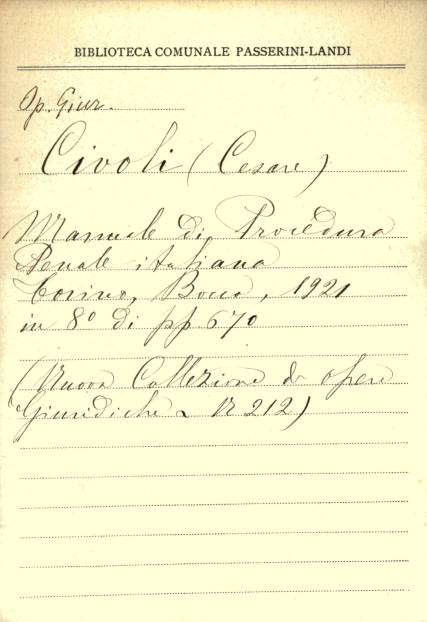 BIBLIOTECA COMUNALE PASSERINI-LANDI
Op. Giur.
Civoli (Cesare)
Manuale di Procedura
Penale italiana
Torino, Bocca, 1921
in 8º di pp 670
(Nuova Collezione di opere
Giuridiche N 212)